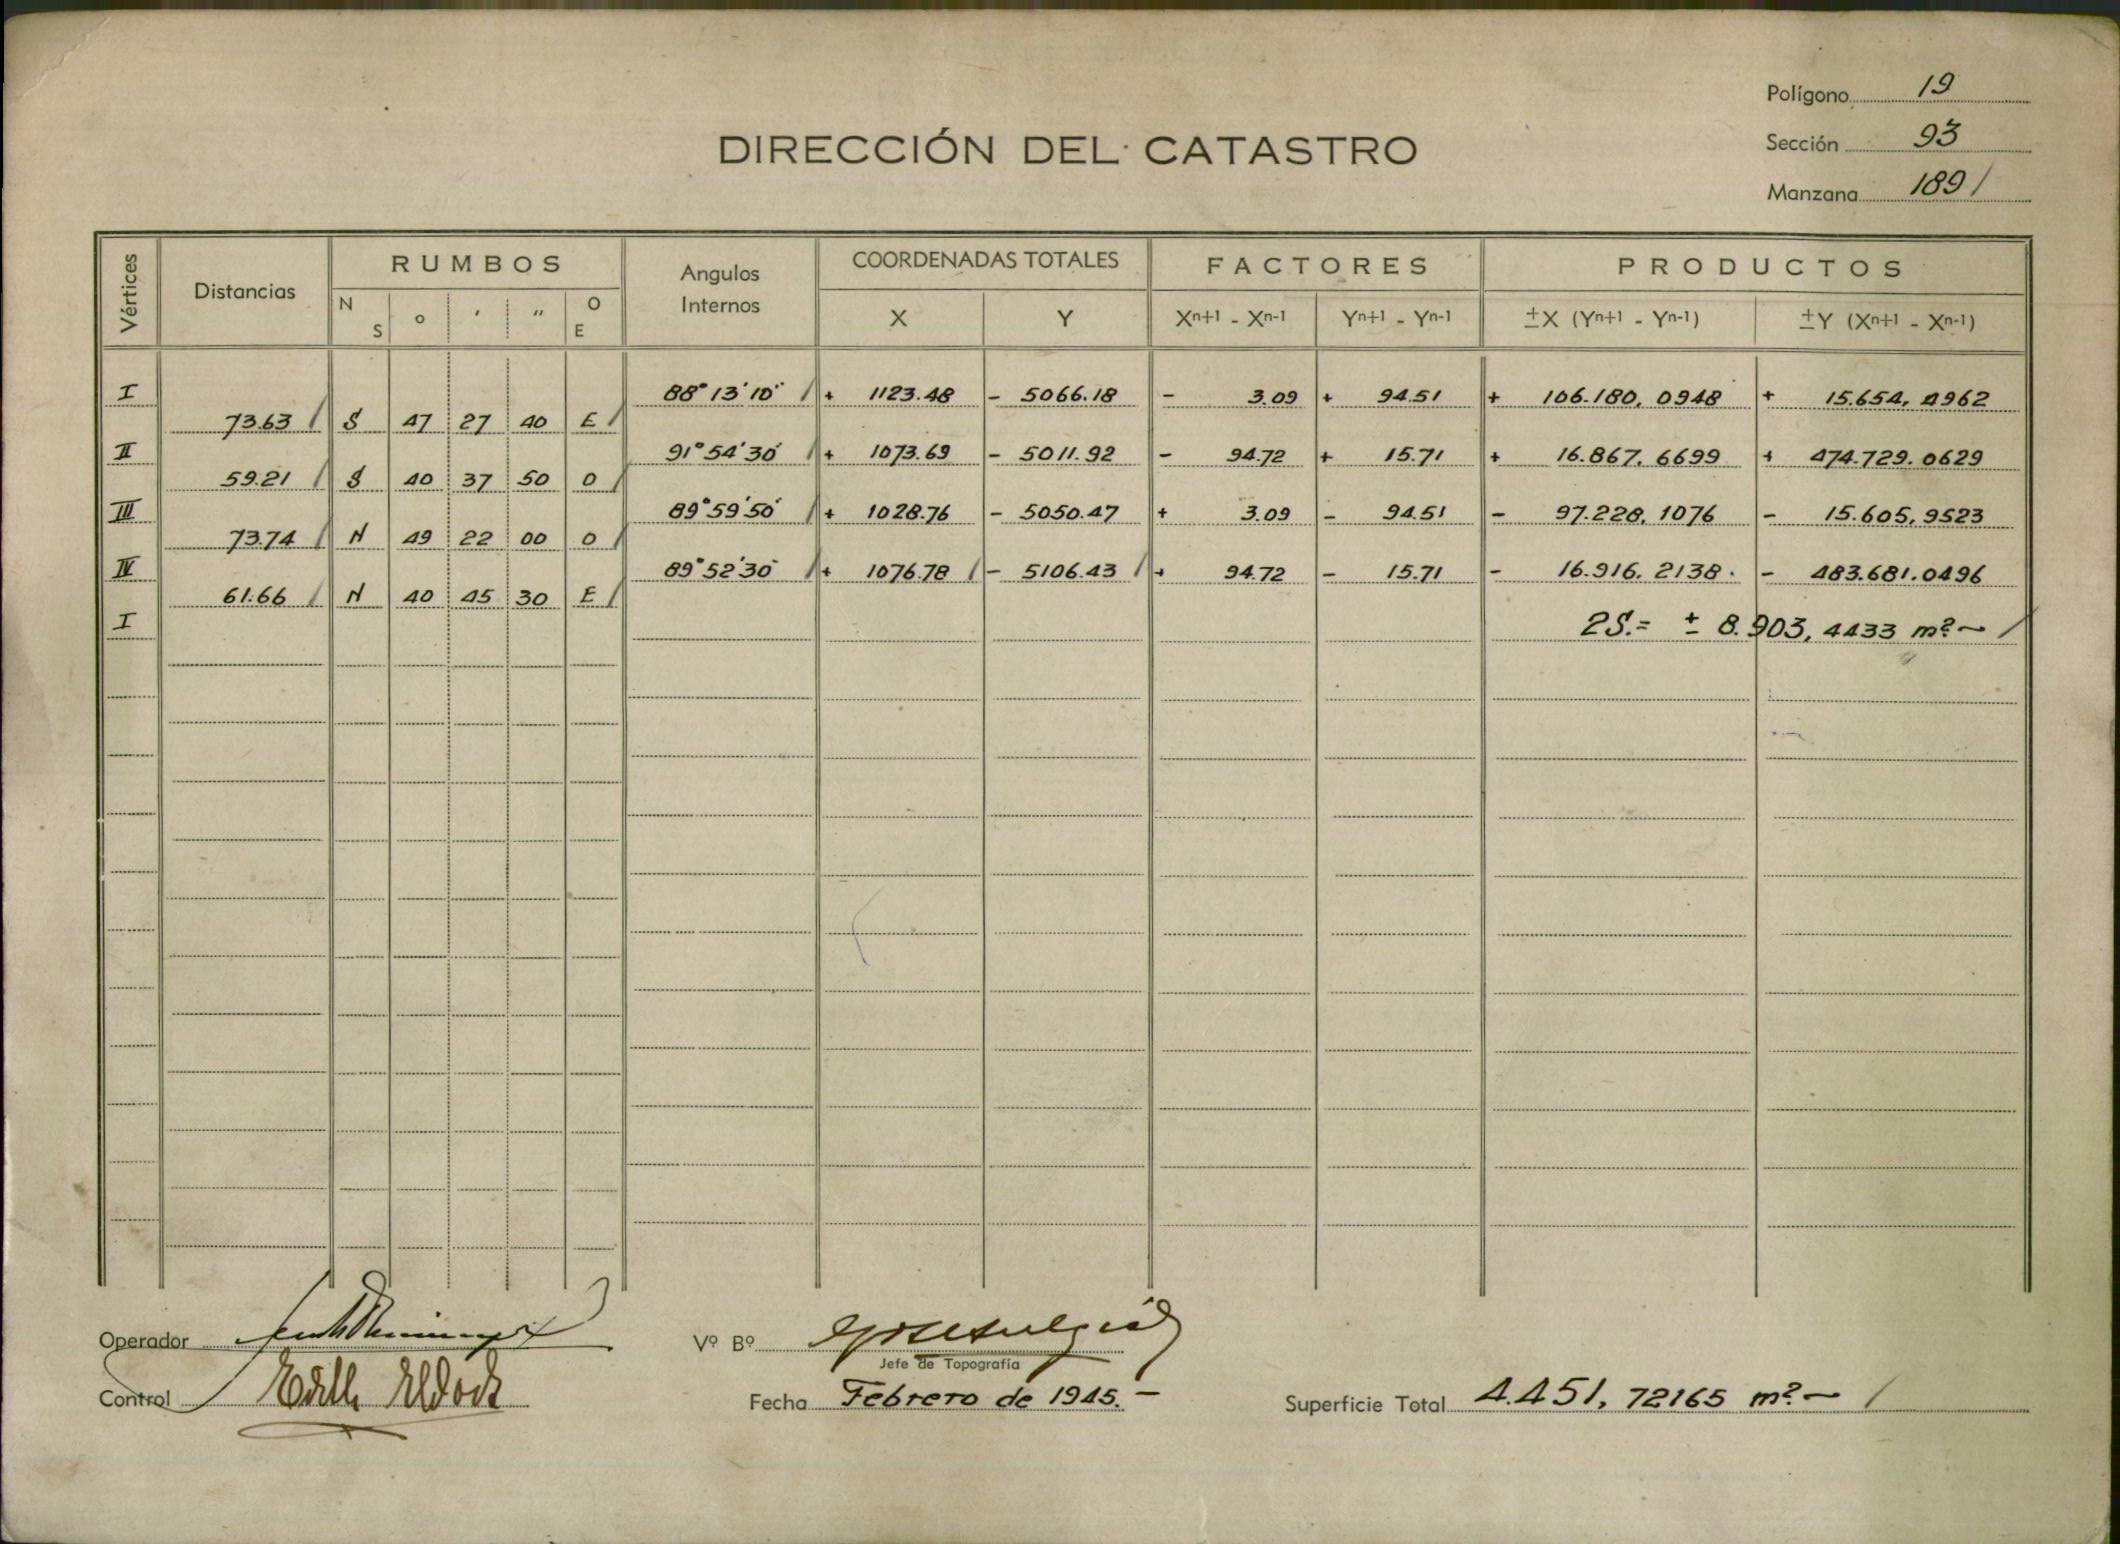 Polígono 19
DIRECCIÓN DEL CATASTRO
Sección 93
Manzana 189
Vértices
Distancias
RUMBOS
N S ° ' " O E
Angulos Internos
COORDENADAS TOTALES
X Y
FACTORES
Xn+1 - Xn-1 Yn+1 - Yn-1
PRODUCTOS
±X (Yn+1 - Yn-1) ±Y (Xn+1 - Xn-1)
I 88° 13' 10" + 1123.48 - 5066.18 - 3.09 + 94.51 + 106.180,0948 + 15.654,4962
73.63 S 47 27 40 E
II 91° 54' 30" + 1073.69 - 5011.92 - 94.72 + 15.71 + 16.867,6699 + 474.729.0629
59.21 S 40 37 50 O
III 89° 59' 50" + 1028.76 - 5050.47 + 3.09 - 94.51 - 97.228,1076 - 15.605,9523
73.74 N 49 22 00 O
IV 89° 52' 30" + 1076.78 - 5106.43 + 94.72 - 15.71 - 16.916.2138 - 483.681.0496
61.66 N 40 45 30 E
I 2S.= ± 8.903,4433 m²
Operador
Vº Bº
Jefe de Topografía
Control
Fecha Febrero de 1945.-
Superficie Total 4.451,72165 m²